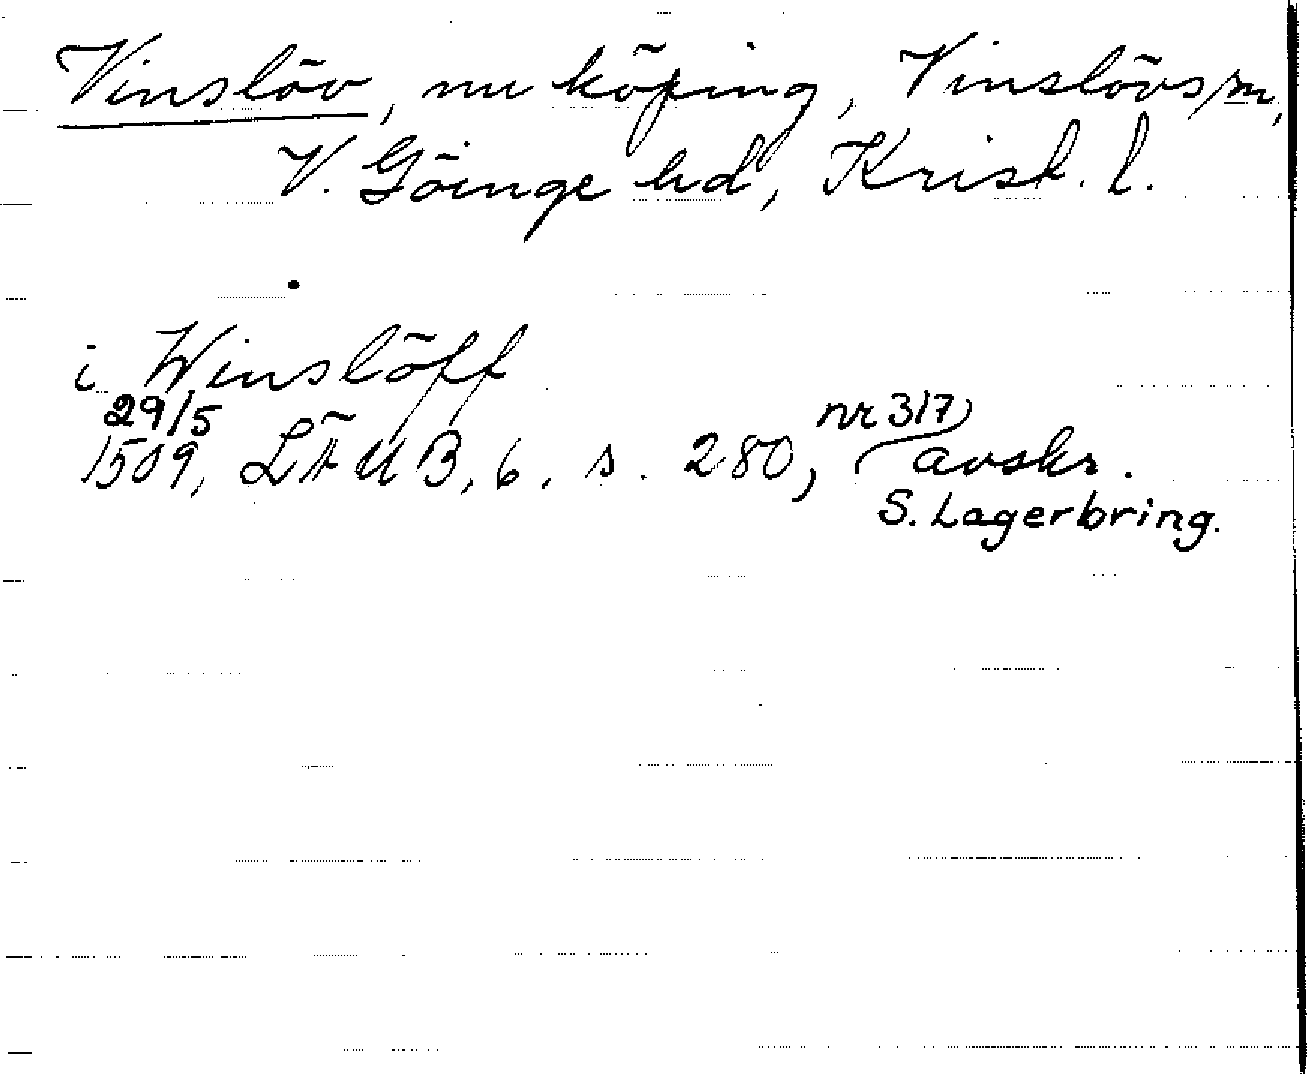 Vinslöv, nu köping, Vinslövs sn,
V. Göinge hd, Krist. l.
i Winslöff
29/5 nr 317)
1509, LÄUB, 6, s. 280, avskr.
S. Lagerbring.